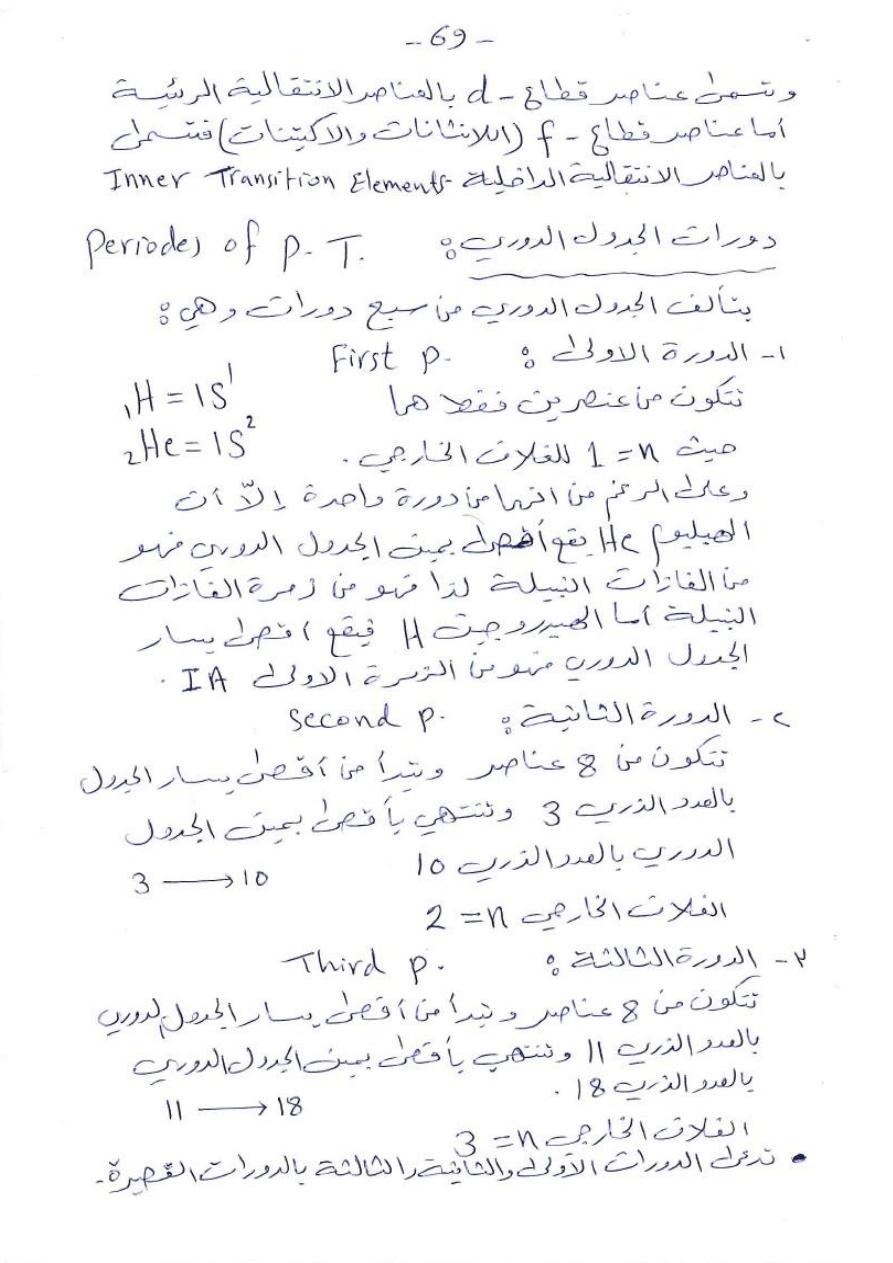 - 69 -
وتسمى عناصر قطاع - d بالعناصر الانتقالية الرئيسة
أما عناصر قطاع - f (اللانثانات والاكتينات) فتسمى
بالعناصر الانتقالية الداخلية Inner Transition Elements
دورات الجدول الدوري : Periodes of P. T.
يتألف الجدول الدوري من سبع دورات وهي :
١- الدورة الاولى : First p.
تتكون من عنصرين فقط هما ₁H = 1S¹
حيث n = 1 للغلاف الخارجي . ₂He = 1S²
وعلى الرغم من انهما من دورة واحدة إلّا أن
الهيليوم He يقع أقصى يمين الجدول الدوري فهو
من الغازات النبيلة لذا فهو من زمرة الغازات
النبيلة أما الهيدروجين H فيقع اقصى يسار
الجدول الدوري فهو من الزمرة الاولى IA .
٢- الدورة الثانية : Second p.
تتكون من 8 عناصر وتبدأ من أقصى يسار الجدول
بالعدد الذري 3 وتنتهي بأقصى يمين الجدول
الدوري بالعدد الذري 10
3 → 10
الغلاف الخارجي n = 2
٣- الدورة الثالثة : Third p.
تتكون من 8 عناصر وتبدأ من أقصى يسار الجدول الدوري
بالعدد الذري 11 وتنتهي بأقصى يمين الجدول الدوري
بالعدد الذري 18 .
11 → 18
الغلاف الخارجي n = 3
• تدعى الدورات الأولى والثانية والثالثة بالدورات القصيرة .